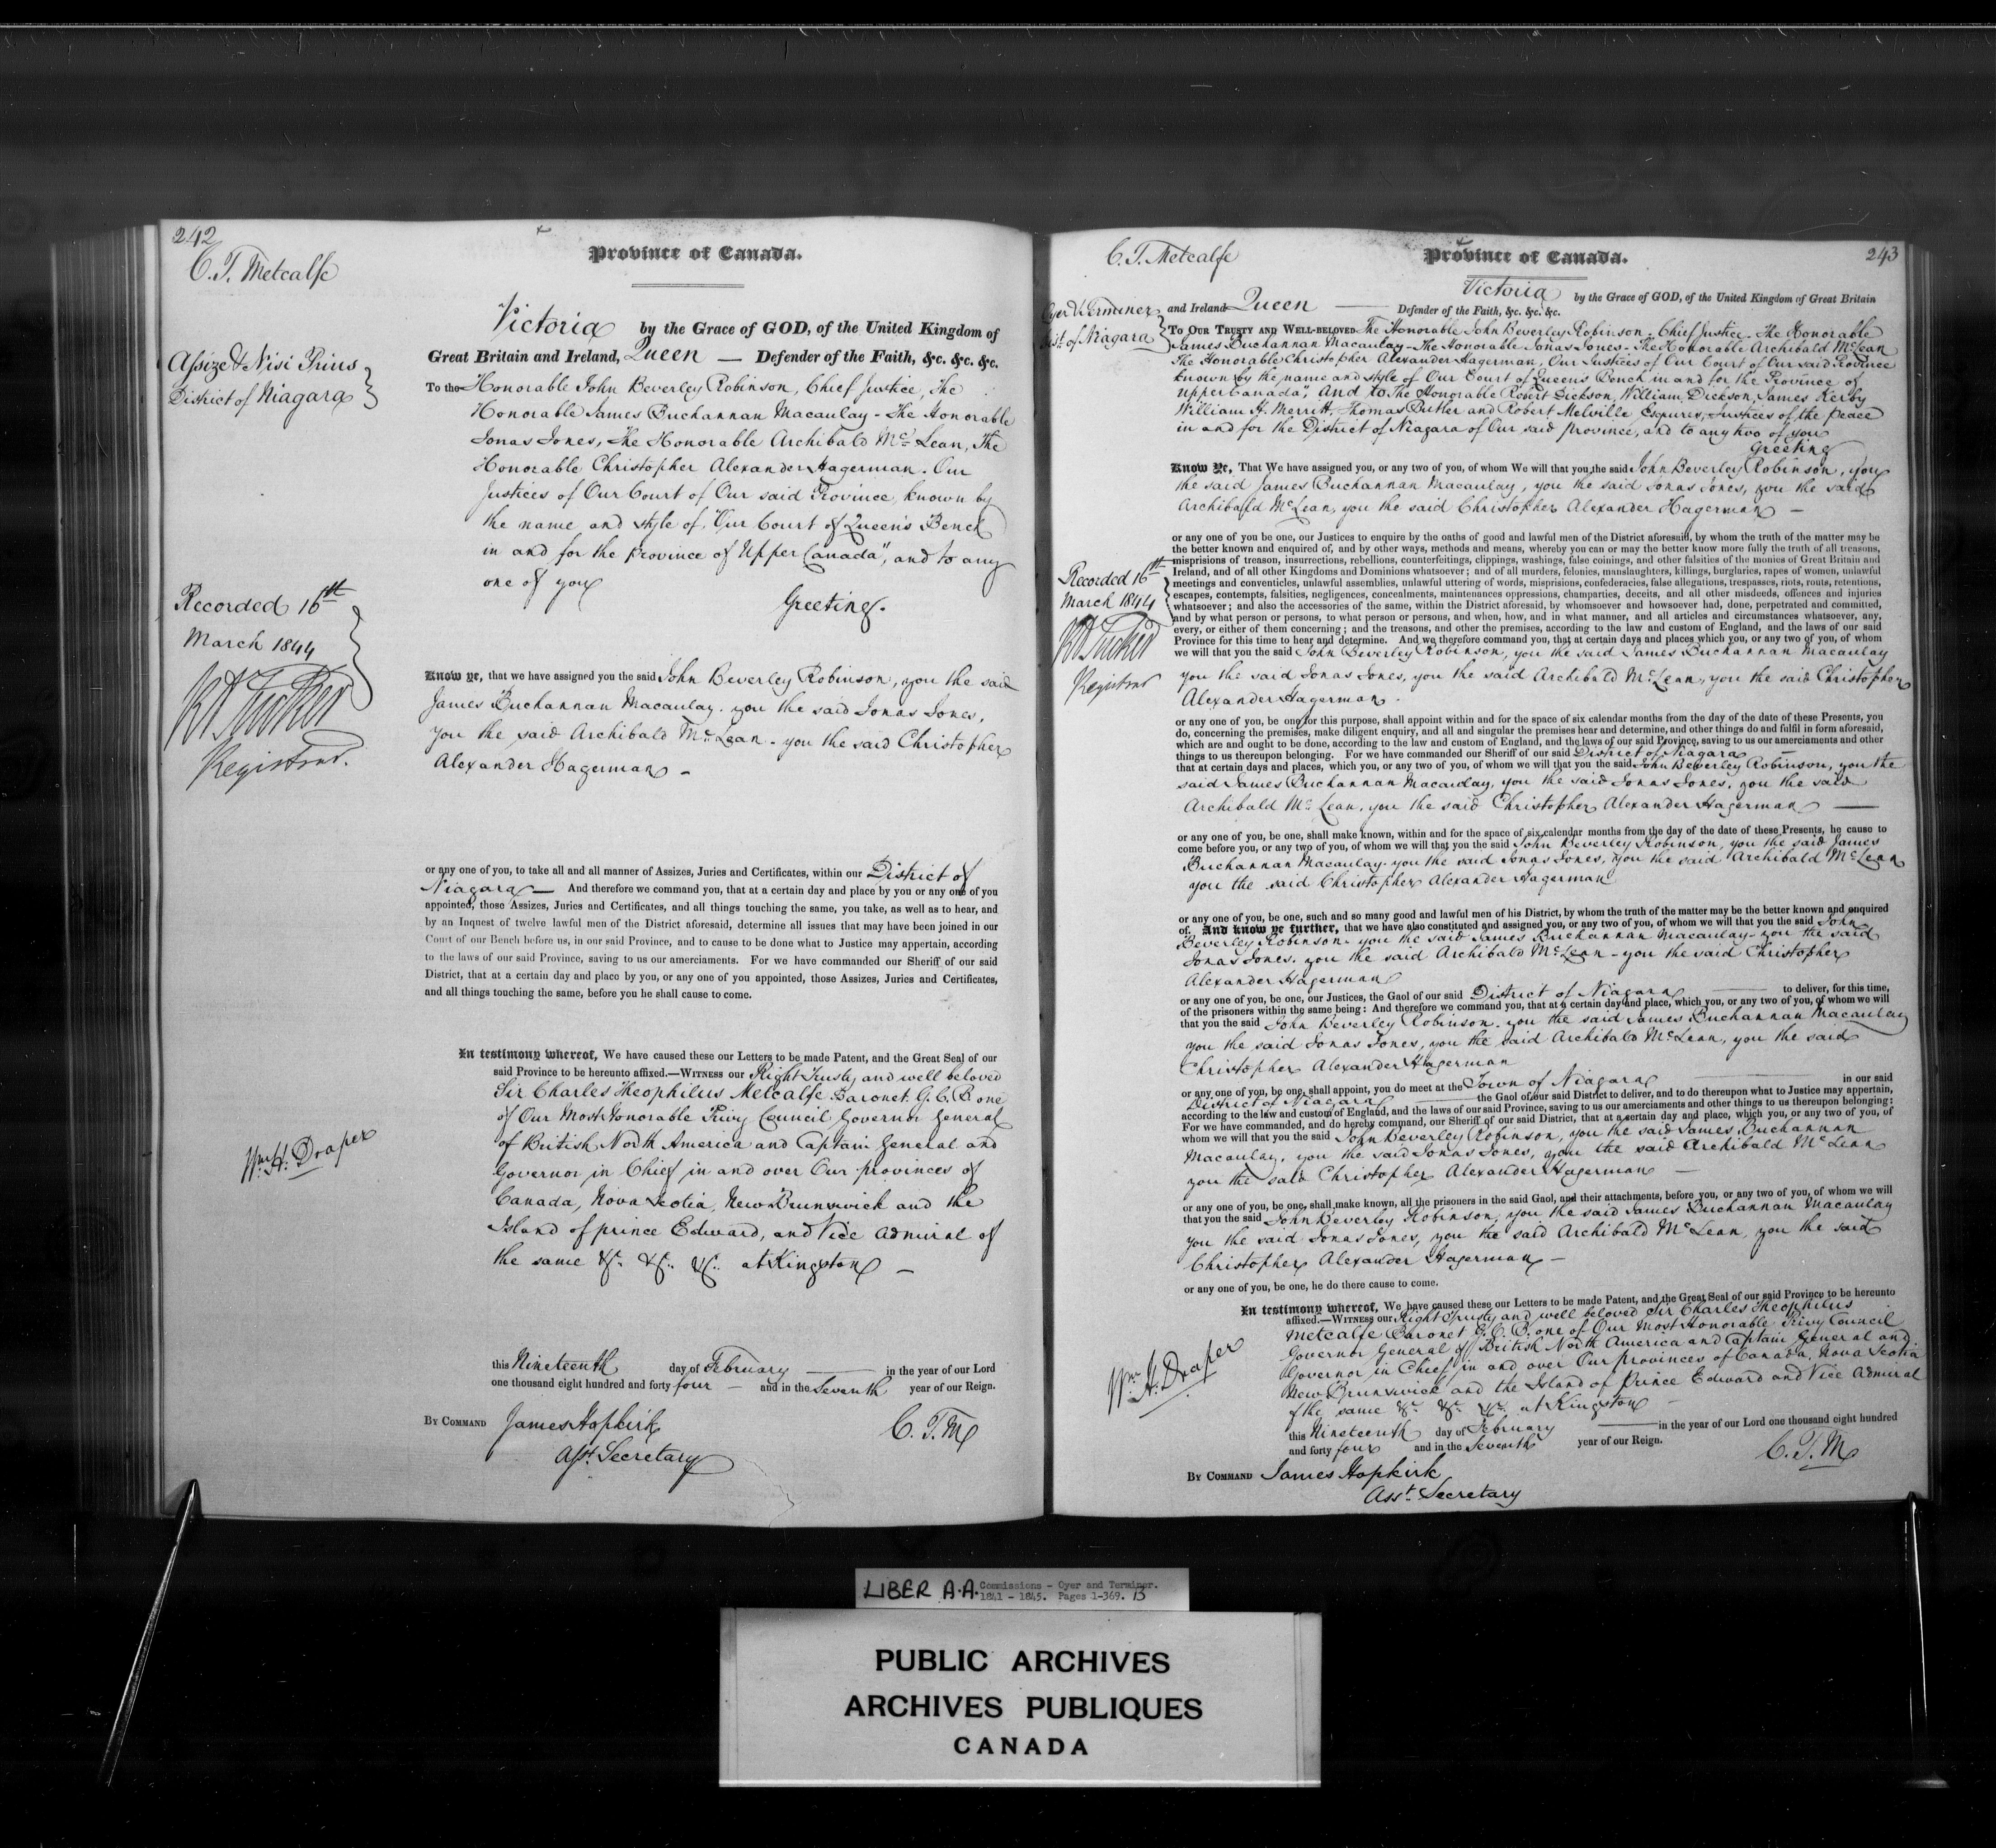 242
C. T. Metcalfe
Province of Canada.
Victoria by the Grace of GOD, of the United Kingdom of
Great Britain and Ireland, Queen — Defender of the Faith, &c. &c. &c.
Assize & Nisi Prius
District of Niagara
To the Honorable John Beverley Robinson, Chief Justice, The
Honorable James Buchannan Macaulay - The Honorable
Jonas Jones, The Honorable Archibald McLean, The
Honorable Christopher Alexander Hagerman. Our
Justices of Our Court of Our said Province, known by
the name and style of, "Our Court of Queen's Bench
in and for the Province of Upper Canada", and to any
one of you
Greeting.
Recorded 16th
March 1844
R A Tucker
Registrar.
Know ye, that we have assigned you the said John Beverley Robinson, you the said
James Buchannan Macaulay. you the said Jonas Jones,
you the said Archibald McLean - you the said Christopher
Alexander Hagerman -
or any one of you, to take all and all manner of Assizes, Juries and Certificates, within our District of
Niagara — And therefore we command you, that at a certain day and place by you or any one of you
appointed, those Assizes, Juries and Certificates, and all things touching the same, you take, as well as to hear, and
by an Inquest of twelve lawful men of the District aforesaid, determine all issues that may have been joined in our
Court of our Bench before us, in our said Province, and to cause to be done what to Justice may appertain, according
to the laws of our said Province, saving to us our amerciaments. For we have commanded our Sheriff of our said
District, that at a certain day and place by you, or any one of you appointed, those Assizes, Juries and Certificates,
and all things touching the same, before you he shall cause to come.
In testimony whereof, We have caused these our Letters to be made Patent, and the Great Seal of our
said Province to be hereunto affixed.—WITNESS our Right Trusty and well beloved
Sir Charles Theophilus Metcalfe Baronet. G. C. B. one
of Our Most Honorable Privy Council Governor General
of British North America and Captain General and
Governor in Chief in and over Our provinces of
Canada, Nova Scotia, New Brunswick and the
Island of prince Edward, and Vice Admiral of
the same &c. &c. &c. at Kingston —
Wm. H. Draper
this Nineteenth day of February — in the year of our Lord
one thousand eight hundred and forty four — and in the Seventh year of our Reign.
BY COMMAND James Hopkirk
Asst. Secretary
C. T. M
C. T. Metcalfe
Province of Canada.
243
Victoria by the Grace of GOD, of the United Kingdom of Great Britain
and Ireland Queen — Defender of the Faith, &c. &c. &c.
Oyer & Terminer
Dist. of Niagara
TO OUR TRUSTY AND WELL-BELOVED The Honorable John Beverley Robinson. Chief Justice. The Honorable
James Buchannan Macaulay - The Honorable Jonas Jones - The Honorable Archibald McLean
The Honorable Christopher Alexander Hagerman, Our Justices of Our Court of Our said Province
known by the name and style of Our Court of Queen's Bench in and for the Province of
Upper Canada", And to The Honorable Robert Dickson, William Dickson, James Kerby
William H. Merritt, Thomas Butler and Robert Melville Esquires, Justices of the peace
in and for the District of Niagara of Our said province, and to any two of you
Greeting
Know Ye, That We have assigned you, or any two of you, of whom We will that you the said John Beverley Robinson, you
the said James Buchannan Macaulay, you the said Jonas Jones, you the said
Archibald McLean, you the said Christopher Alexander Hagerman —
or any one of you be one, our Justices to enquire by the oaths of good and lawful men of the District aforesaid, by whom the truth of the matter may be
the better known and enquired of, and by other ways, methods and means, whereby you can or may the better know more fully the truth of all treasons,
misprisions of treason, insurrections, rebellions, counterfeitings, clippings, washings, false coinings, and other falsities of the monies of Great Britain and
Ireland, and of all other Kingdoms and Dominions whatsoever; and of all murders, felonies, manslaughters, killings, burglaries, rapes of women, unlawful
meetings and conventicles, unlawful assemblies, unlawful uttering of words, misprisions, confederacies, false allegations, trespasses, riots, routs, retentions,
escapes, contempts, falsities, negligences, concealments, maintenances oppressions, champarties, deceits, and all other misdeeds, offences and injuries
whatsoever; and also the accessories of the same, within the District aforesaid, by whomsoever and howsoever had, done, perpetrated and committed,
and by what person or persons, to what person or persons, and when, how, and in what manner, and all articles and circumstances whatsoever, any,
every, or either of them concerning; and the treasons, and other the premises, according to the law and custom of England, and the laws of our said
Province for this time to hear and determine. And we therefore command you, that at certain days and places which you, or any two of you, of whom
we will that you the said John Beverley Robinson, you the said James Buchannan Macaulay
you the said Jonas Jones, you the said Archibald McLean, you the said Christopher
Alexander Hagerman.
Recorded 16th
March 1844
R A Tucker
Registrar
or any one of you, be one, for this purpose, shall appoint within and for the space of six calendar months from the day of the date of these Presents, you
do, concerning the premises, make diligent enquiry, and all and singular the premises hear and determine, and other things do and fulfil in form aforesaid,
which are and ought to be done, according to the law and custom of England, and the laws of our said Province, saving to us our amerciaments and other
things to us thereupon belonging. For we have commanded our Sheriff of our said District of Niagara —
that at certain days and places, which you, or any two of you, of whom we will that you the said John Beverley Robinson, you the
said James Buchannan Macaulay, you the said Jonas Jones, you the said
Archibald McLean, you the said Christopher Alexander Hagerman —
or any one of you, be one, shall make known, within and for the space of six calendar months from the day of the date of these Presents, he cause to
come before you, or any two of you, of whom we will that you the said John Beverley Robinson, you the said James
Buchannan Macaulay. you the said Jonas Jones, you the said Archibald McLean
you the said Christopher Alexander Hagerman
or any one of you, be one, such and so many good and lawful men of his District, by whom the truth of the matter may be the better known and enquired
of. And know ye further, that we have also constituted and assigned you, or any two of you, of whom we will that you the said John
Beverley Robinson - you the said James Buchannan Macaulay - you the said
Jonas Jones. you the said Archibald McLean - you the said Christopher
Alexander Hagerman
or any one of you, be one, our Justices, the Gaol of our said District of Niagara — to deliver, for this time,
of the prisoners within the same being: And therefore we command you, that at a certain day and place, which you, or any two of you, of whom we will
that you the said John Beverley Robinson. you the said James Buchannan Macaulay
you the said Jonas Jones, you the said Archibald McLean, you the said
Christopher Alexander Hagerman
or any one of you, be one, shall appoint, you do meet at the Town of Niagara — in our said
District of Niagara — the Gaol of our said District to deliver, and to do thereupon what to Justice may appertain,
according to the law and custom of England, and the laws of our said Province, saving to us our amerciaments and other things to us thereupon belonging:
For we have commanded, and do hereby command, our Sheriff of our said District, that at a certain day and place, which you, or any two of you, of
whom we will that you the said John Beverley Robinson, you the said James Buchannan
Macaulay, you the said Jonas Jones, you the said Archibald McLean
you the said Christopher Alexander Hagerman —
or any one of you, be one, shall make known, all the prisoners in the said Gaol, and their attachments, before you, or any two of you, of whom we will
that you the said John Beverley Robinson, you the said James Buchannan Macaulay
you the said Jonas Jones, you the said Archibald McLean, you the said
Christopher Alexander Hagerman —
or any one of you, be one, he do there cause to come.
In testimony whereof, We have caused these our Letters to be made Patent, and the Great Seal of our said Province to be hereunto
affixed.—WITNESS our Right Trusty and well beloved Sir Charles Theophilus
Metcalfe Baronet G. C. B. one of Our Most Honorable Privy Council
Governor General of British North America and Captain General and
Governor in Chief in and over Our provinces of Canada, Nova Scotia
New Brunswick and the Island of Prince Edward and Vice Admiral
of the same &c. &c. &c. at Kingston
Wm. H. Draper
this Nineteenth day of February — in the year of our Lord one thousand eight hundred
and forty four and in the Seventh year of our Reign.
C. T. M
BY COMMAND James Hopkirk
Asst. Secretary
LIBER A.A. Commissions - Oyer and Terminer.
1841 - 1845. Pages 1-369. 13
PUBLIC ARCHIVES
ARCHIVES PUBLIQUES
CANADA